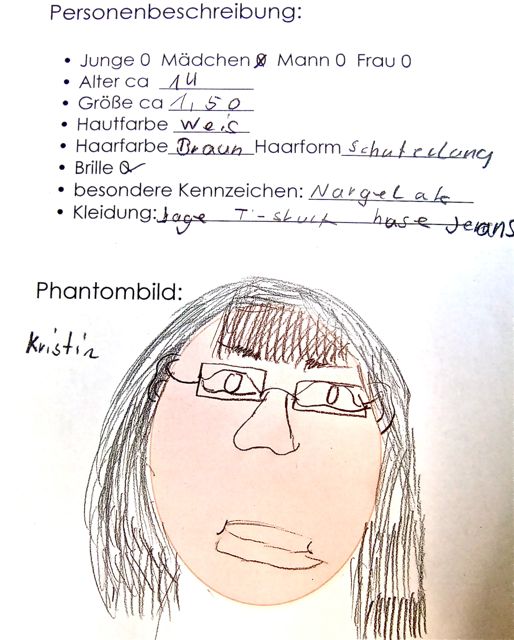 Personenbeschreibung:
• Junge O Mädchen O Mann O Frau O
• Alter ca 14
• Größe ca 1,50
• Hautfarbe weis
• Haarfarbe Braun Haarform Schuterlang
• Brille O
• besondere Kennzeichen: Nargelak
• Kleidung: T-sturt hose Jeans
Phantombild:
Kristin